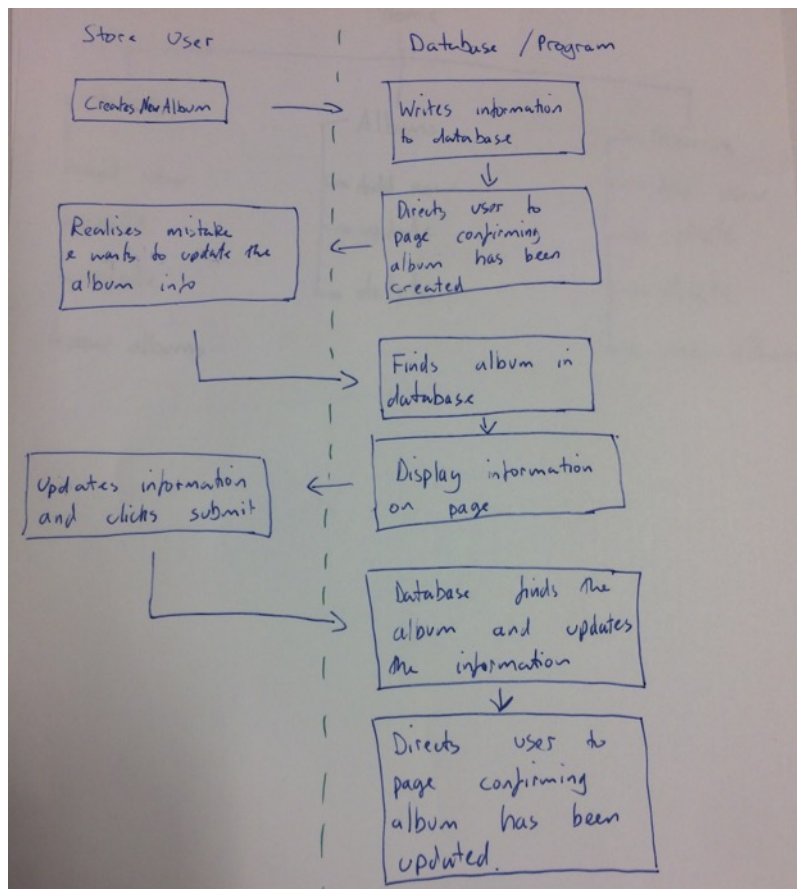 Store User
Database / Program
Creates New Album
Writes information
to database
Directs user to
page confirming
album has been
created
Realises mistake
& wants to update the
album info
Finds album in
database
Display information
on page
Updates information
and clicks submit
Database finds the
album and updates
the information
Directs user to
page confirming
album has been
updated.